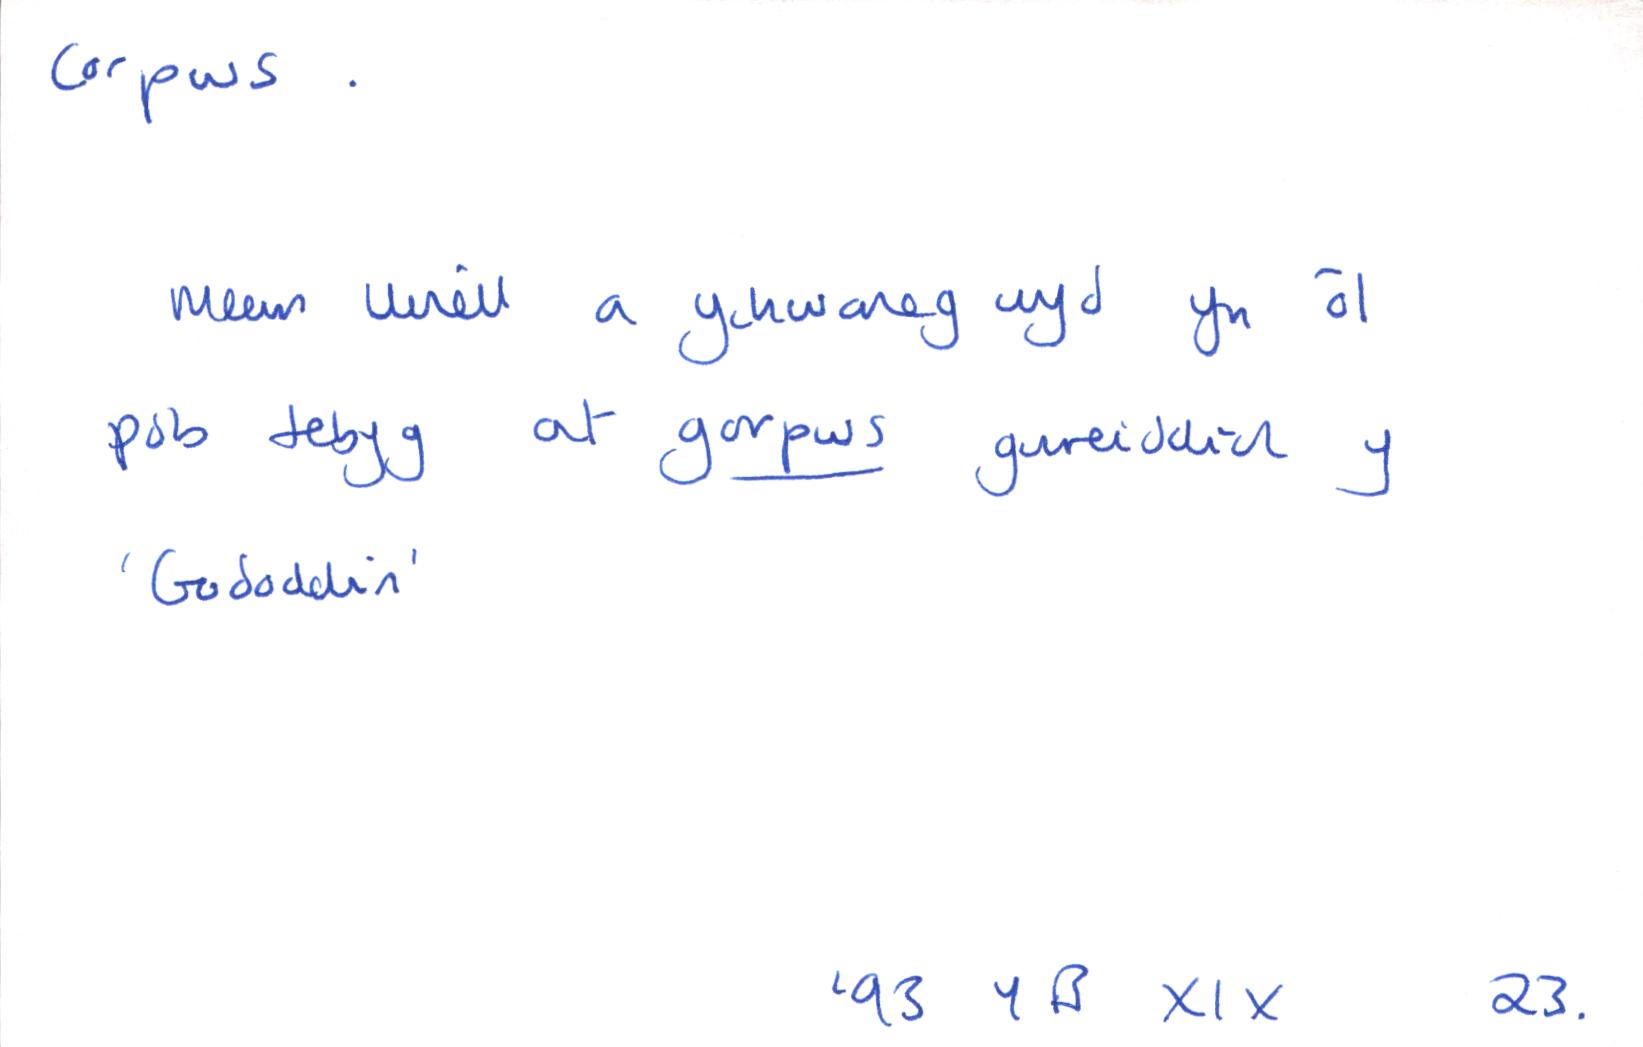 Corpws .
mewn llinell a ychwanegwyd yn ôl
pob tebyg at gorpws gwreiddiol y
'Gododdin'
'93 YB XIX 23.